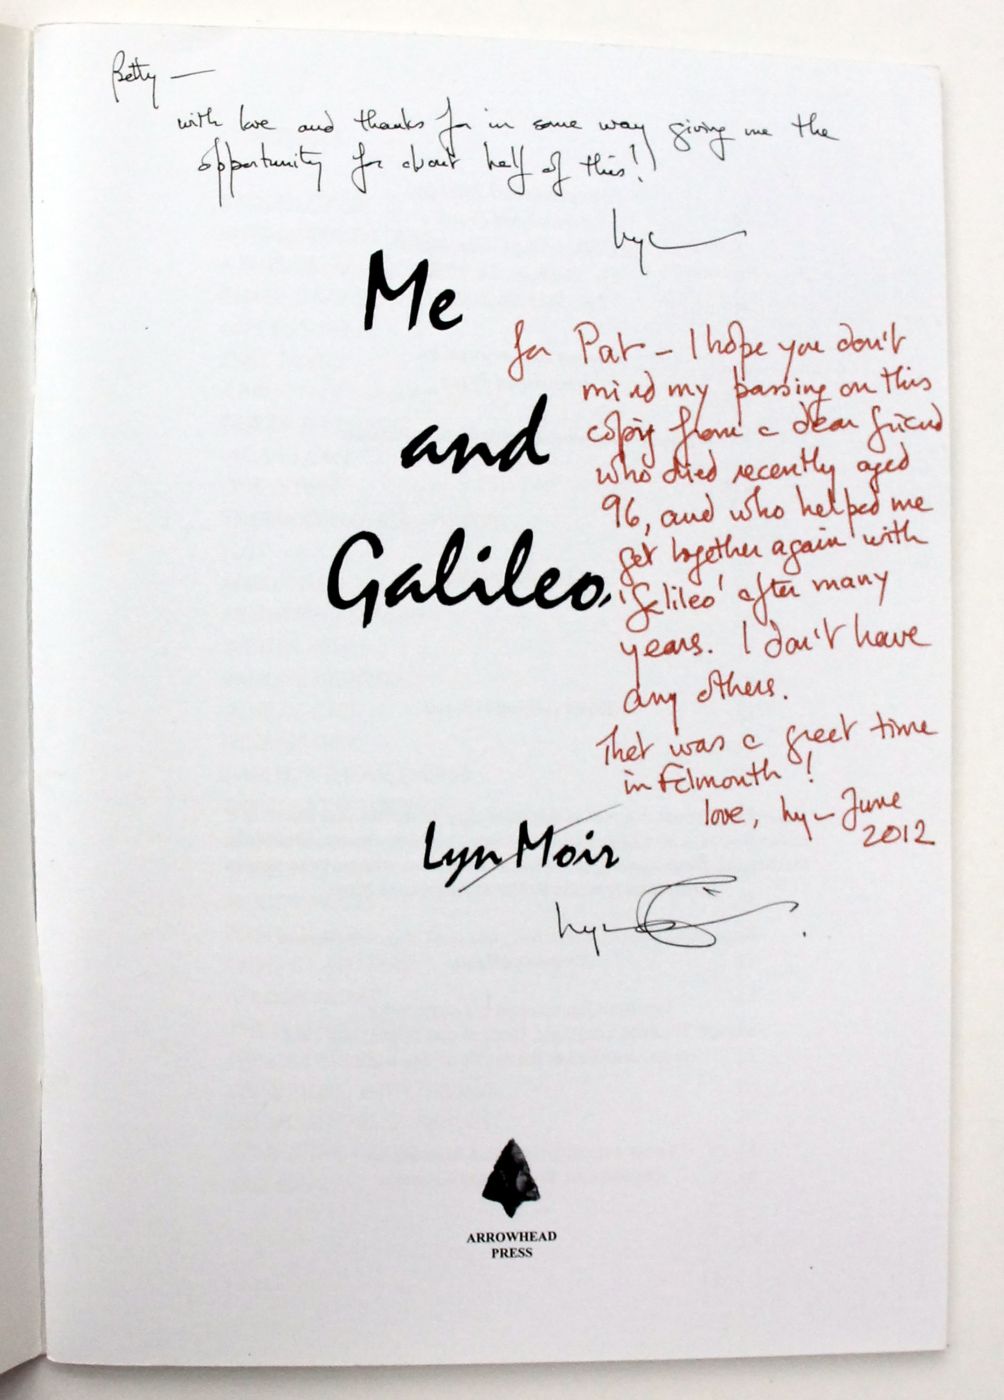 Betty —
with love and thanks for in some way giving me the
opportunity for about half of this!
Lyn
Me
and
Galileo
for Pat – I hope you don't
mind my passing on this
copy from a dear friend
who died recently aged
96, and who helped me
get together again with
'Galileo' after many
years. I don't have
any others.
That was a great time
in Falmouth!
love, Lyn June
2012
Lyn Moir
Lyn
ARROWHEAD
PRESS